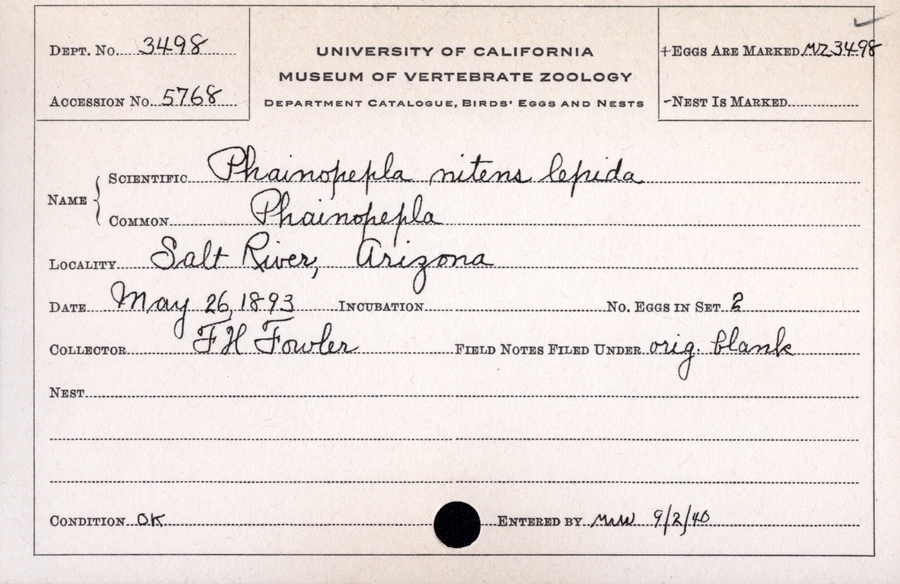 DEPT. NO. 3498
ACCESSION NO. 5768
UNIVERSITY OF CALIFORNIA
MUSEUM OF VERTEBRATE ZOOLOGY
DEPARTMENT CATALOGUE, BIRDS' EGGS AND NESTS
+EGGS ARE MARKED MVZ3498
-NEST IS MARKED
NAME
SCIENTIFIC Phainopepla nitens lepida
COMMON Phainopepla
LOCALITY Salt River, Arizona
DATE May 26, 1893 INCUBATION NO. EGGS IN SET 2
COLLECTOR F H Fowler FIELD NOTES FILED UNDER orig. blank
NEST
CONDITION OK ENTERED BY 9/2/40